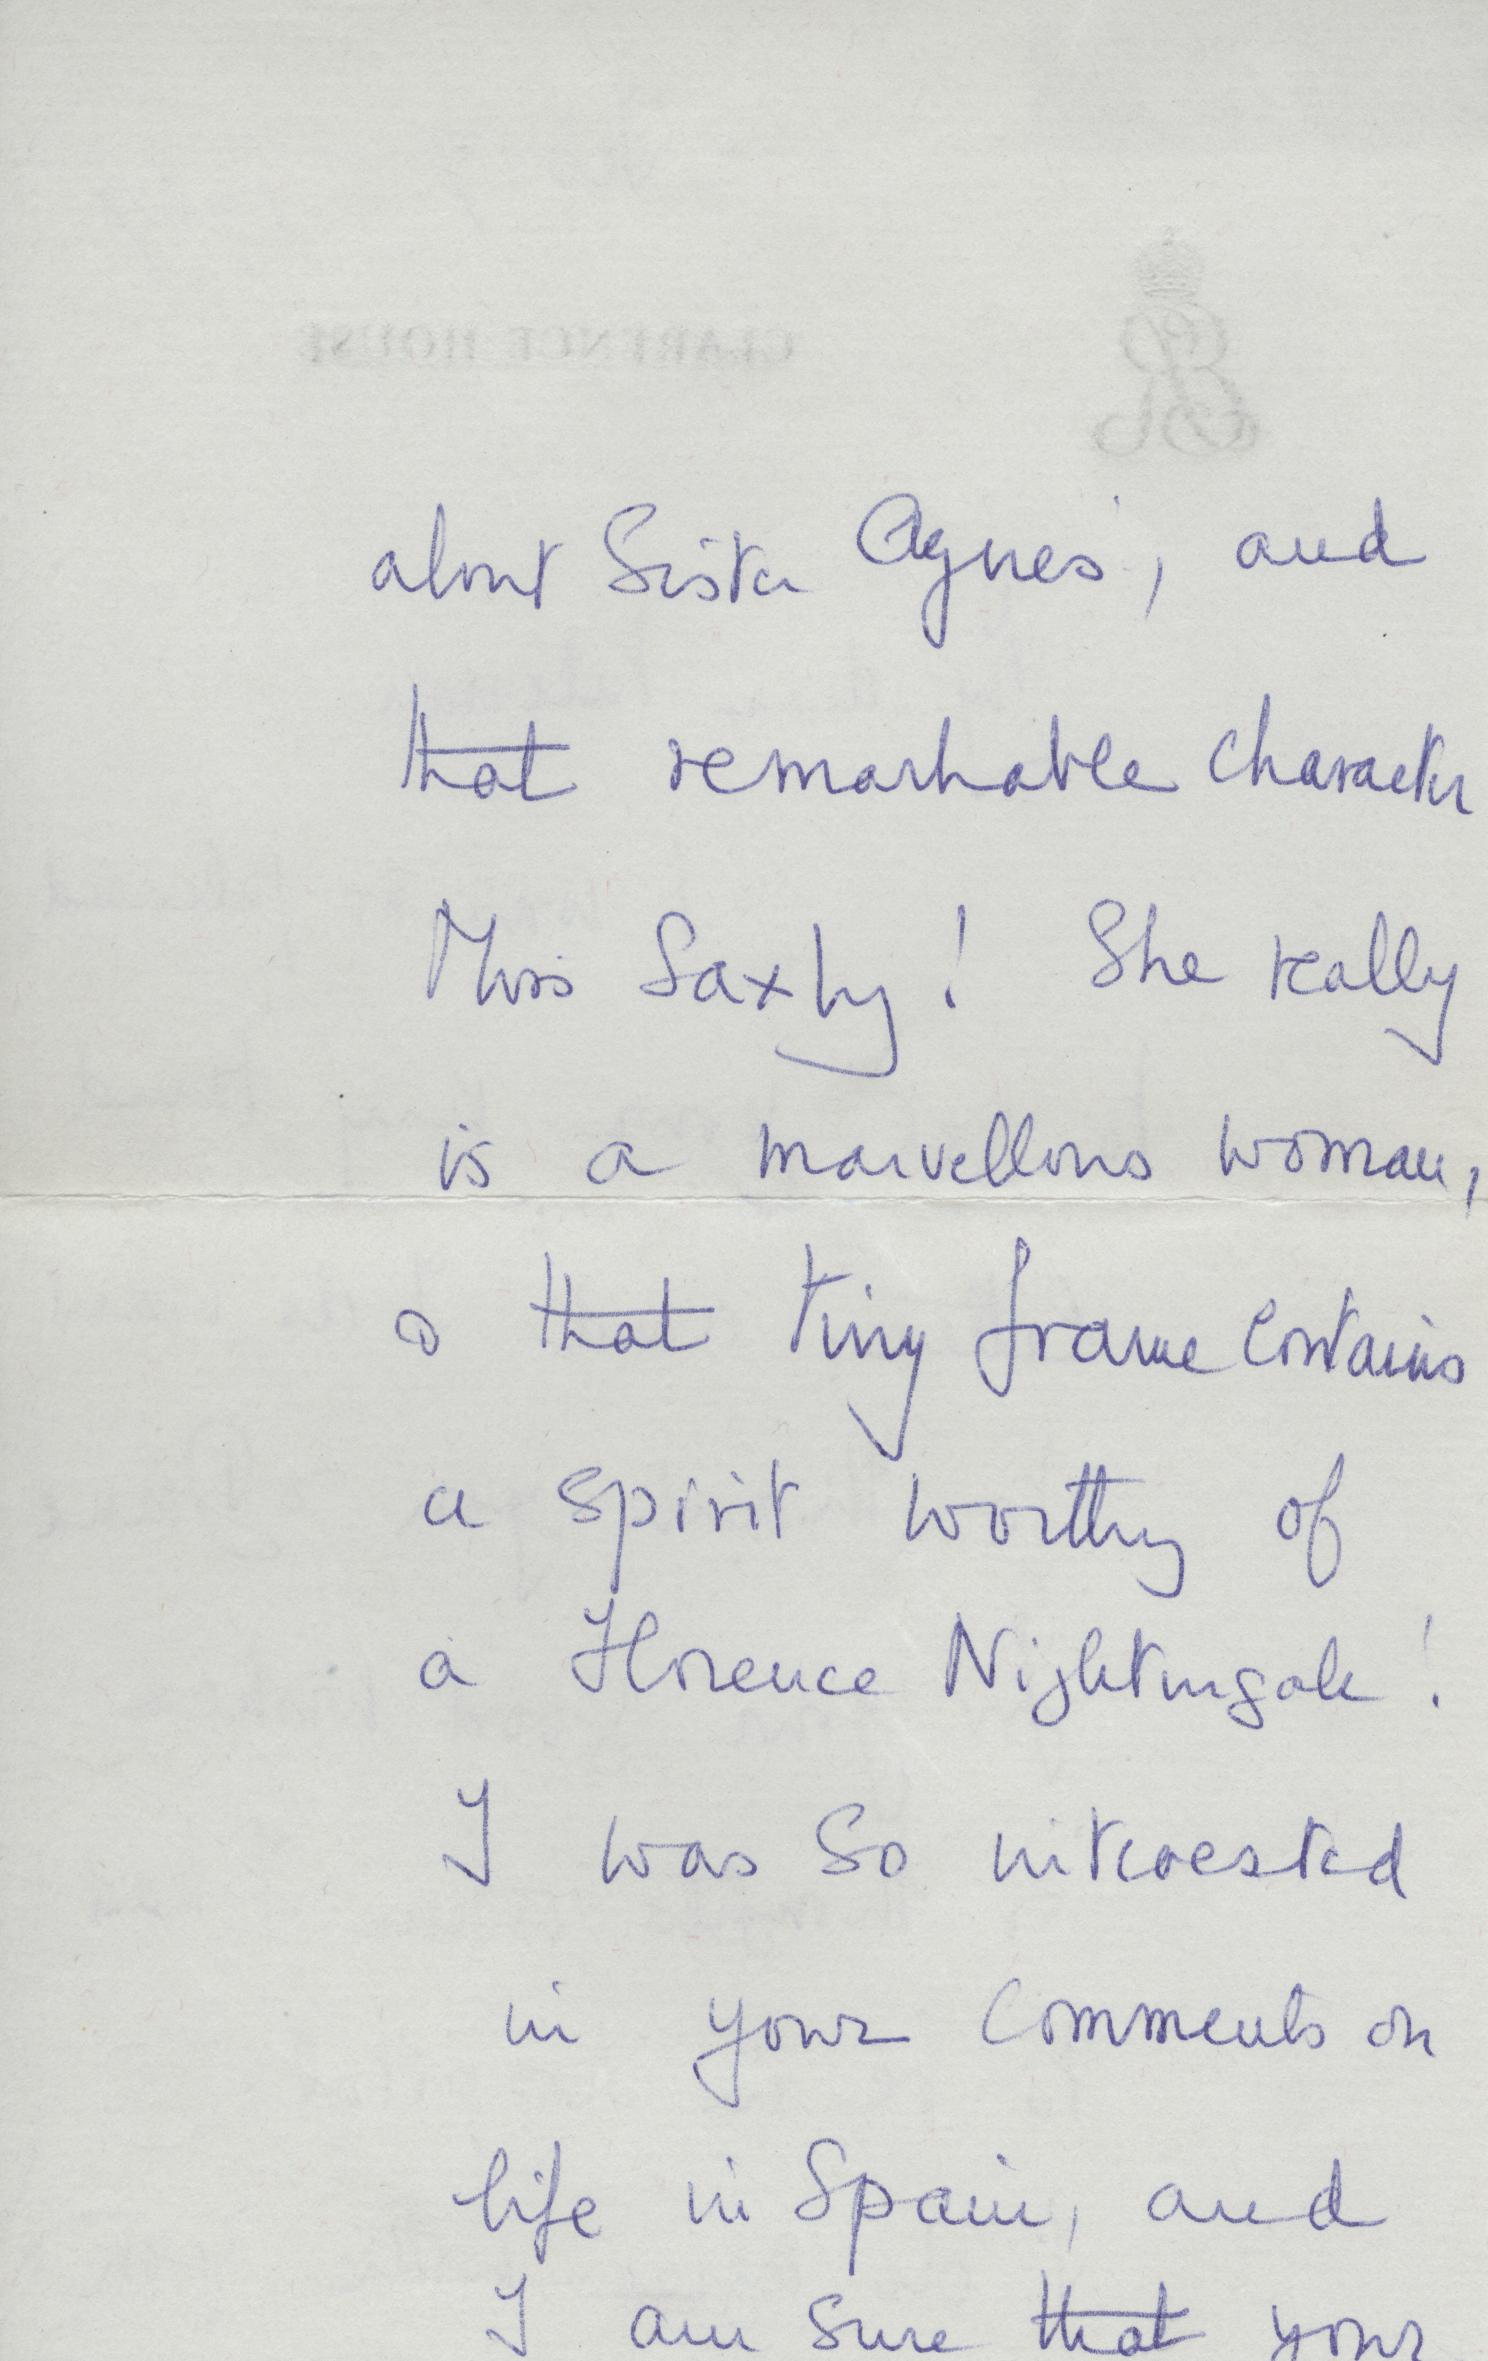 CLARENCE HOUSE
about Sister Agnes', and
that remarkable character
Miss Saxby! She really
is a marvellous woman,
& that tiny frame contains
a spirit worthy of
a Florence Nightingale!
I was so interested
in your comments on
life in Spain, and
I am sure that your